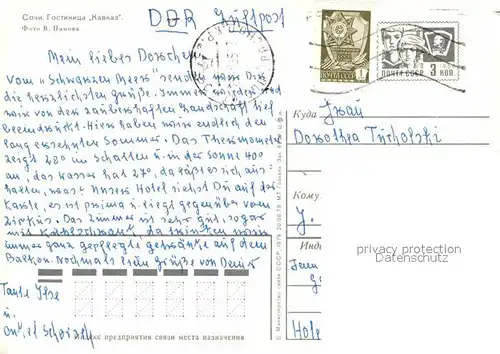 Сочи. Гостиница „Кавказ“.
Фото В. Панова
DDR Luftpost
Mein lieber Dorchen
Vom „Schwarzen Meer“ senden wir Dir
die herzlichsten Grüße. Immer wieder sind
wir von der zauberhaften Landschaft tief
beeindruckt. Hier haben wir endlich den
lang ersehnten Sommer. Das Thermometer
zeigt 28° im Schatten u. in der Sonne 40°
an, das Wasser hat 24°, da läßt es sich aus-
halten, was? Unser Hotel siehst Du auf der
Karte, es ist prima u. liegt gegenüber vom
Zirkus. Das Zimmer ist sehr gut, sogar
mit Kühlschrank, da trinken wir
immer ganz gepflegte Getränke auf dem
Balkon. Nochmals liebe Grüße von Deiner
Tante Ilse
u.
Onkel
Индекс предприятия связи места назначения
ПОЧТА СССР
1
ПОЧТА СССР 3 КОП.
Куда
Dorothea Tucholski
Кому
Инди
privacy protection
Datenschutz
© Министерство связи СССР, 1978